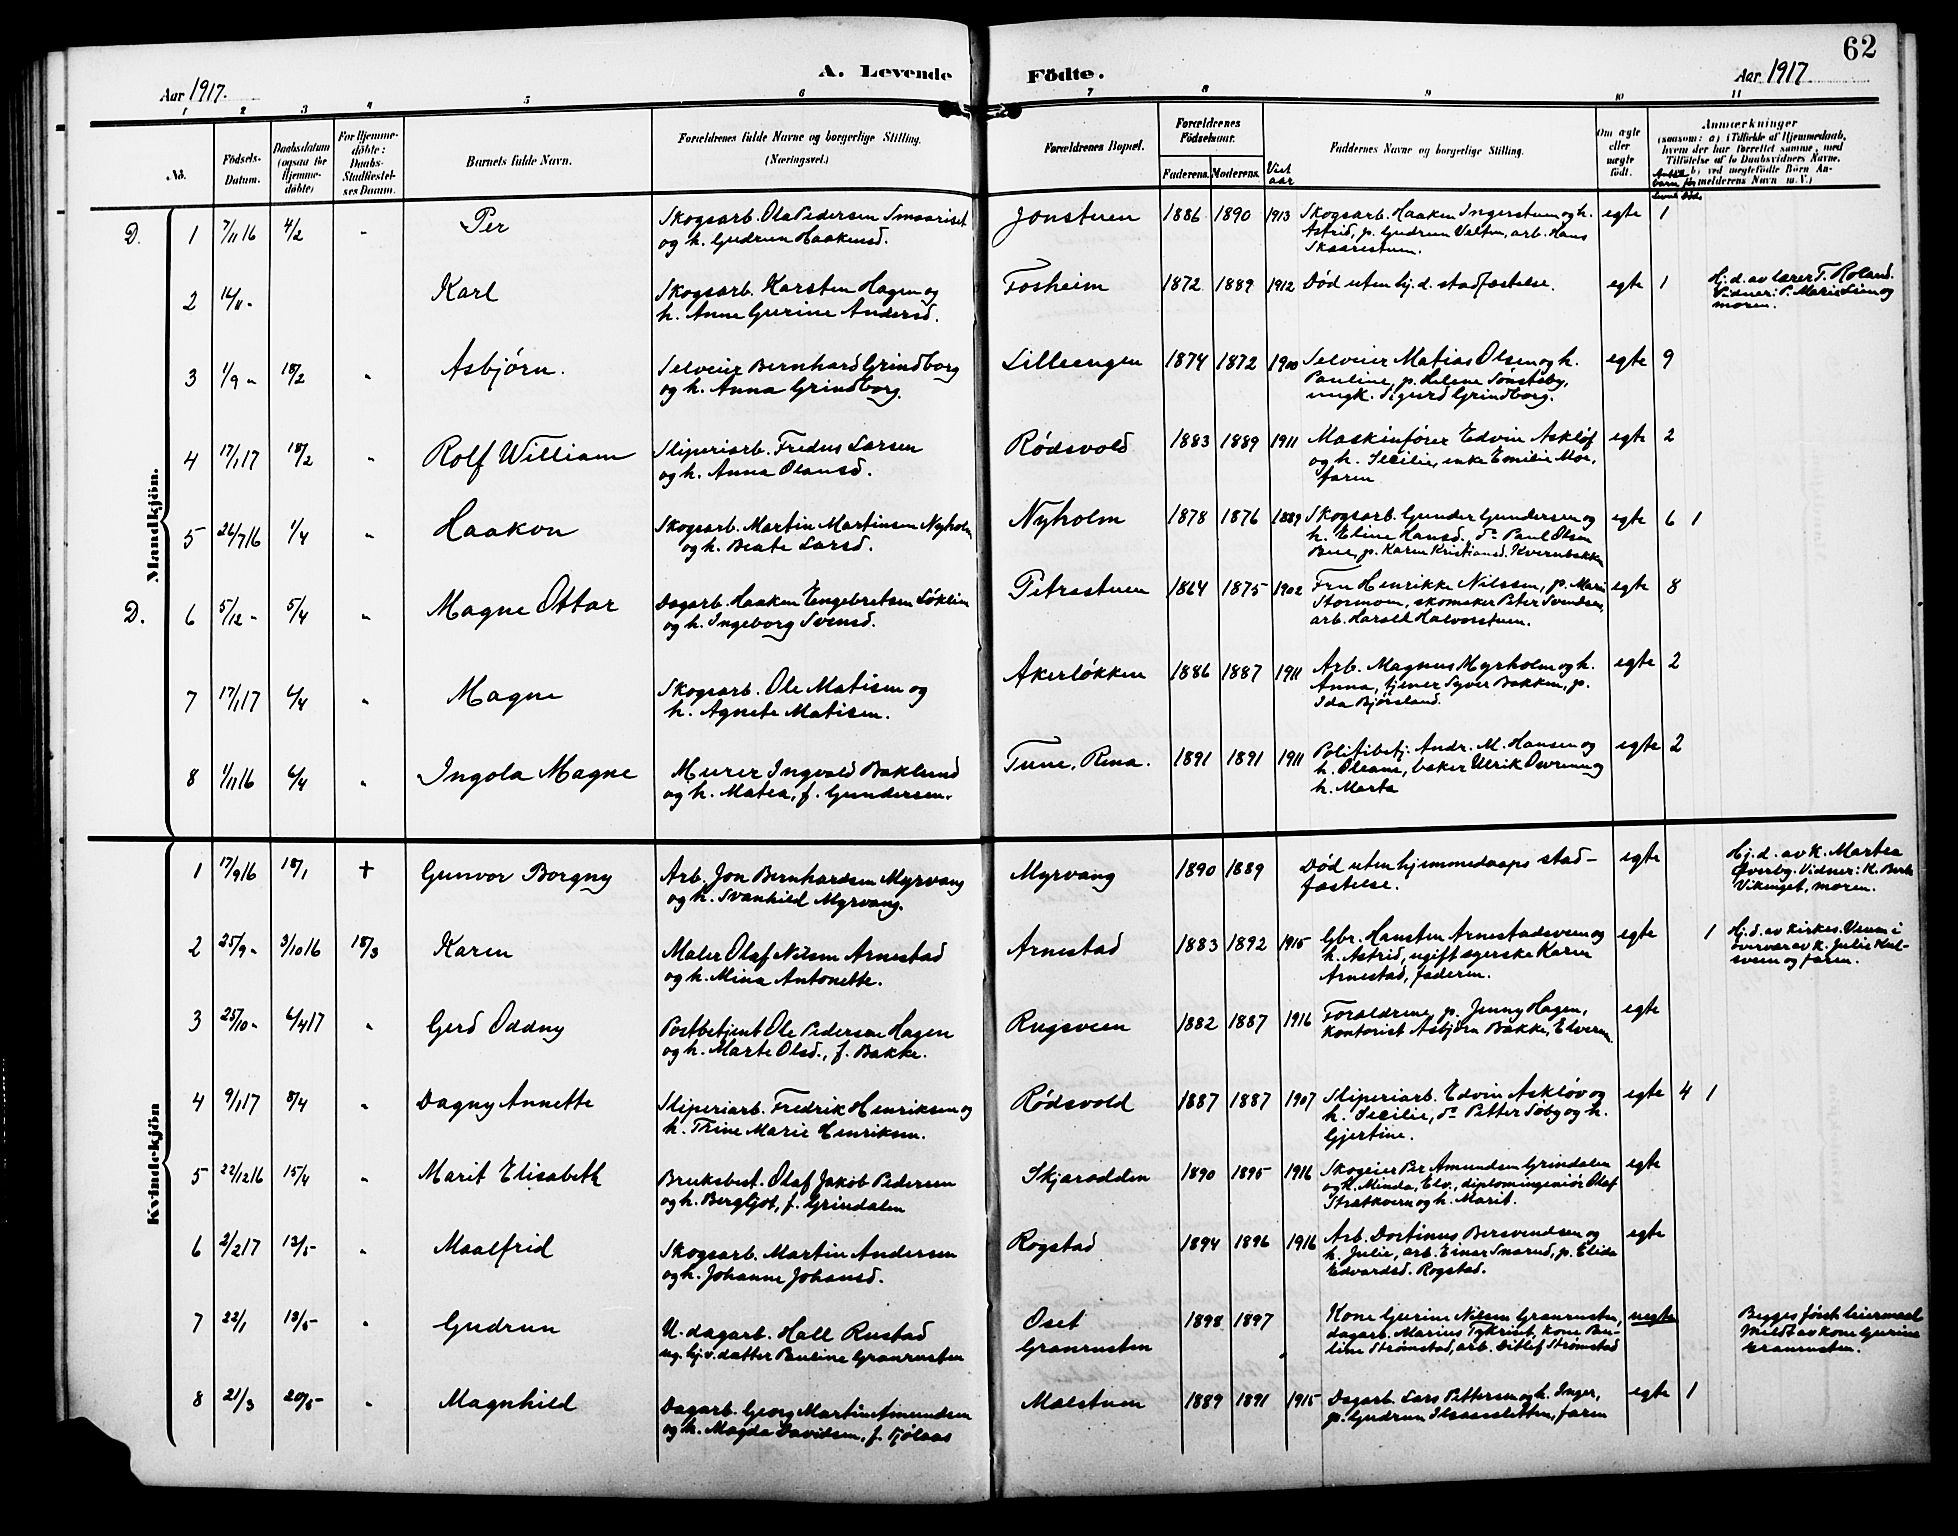 62
A. Levende Födte.
Aar 1917.
Aar 1917
1 2 3 4 5 6 7 8 9 10 11
No.
Födsels-
Datum.
Daabsdatum
(ogsaa for
Hjemme-
döbte)
For Hjemme-
döbte:
Daabs-
Stadfæstel-
ses Datum.
Barnets fulde Navn.
Forældrenes fulde Navne og borgerlige Stilling.
(Næringsvei.)
Forældrenes Bopæl.
Forældrenes
Födselsaar.
Faderens. Moderens.
Viet
aar
Faddernes Navne og borgerlige Stilling.
Om ægte
eller
uægte
födt.
Anmærkninger
(saasom: a) i Tilfælde af Hjemmedaab,
hvem der har forrettet samme, med
Tilföielse af to Daabsvidners Navne.
b) ved uægtefödte Börn An-
melderens Navn o. V.)
Mandkjön.
D. 1 7/11 16 4/2 " Per
Skogsarb. Ola Pedersen Smaariset
og h. Gudrun Haakensd.
Jonstuen 1886 1890 1913
Skogsarb. Haaken Ingerstuen og h.
Astrid, p. Gudrun Velten, arb. Hans
Skaarestuen.
egte 1
2 16/11 - Karl
Skogsarb. Karsten Hagen og
h. Anne Gurine Andersd.
Fosheim 1872 1889 1912
Død uten hj.d. stadfæstelse.
egte 1
Hj.d. av lærer T. Roland.
Vidner: P. Marie Lien og
moren.
3 1/9 - 18/2 " Asbjørn.
Selveier Bernhard Grindborg
og h. Anna Grindborg.
Lilleengen 1874 1872 1900
Selveier Matias Olsen og h.
Pauline, p. Helene Sønsteby,
ungk. Sigurd Grindborg.
egte 9
4 17/1 17 18/2 " Rolf William
Sliperiarb. Fredus Larsen
og h. Anna Olausd.
Rødsvold 1883 1889 1911
Maskinfører Edvin Askløf
og h. Secilie, enke Emilie Moe,
faren
egte 2
5 26/7 16 1/4 " Haakon
Skogsarb. Martin Martinsen Nyholm
og h. Beate Larsd.
Nyholm 1878 1876 1889
Skogsarb. Gunder Gundersen og
h. Eline Hansd., do Paul Olsen
Bue, p. Karen Kristiansd. Kvernbakken
egte 6 1
D. 6 5/12 - 5/4 " Magne Ottar
Dagarb. Haaken Engebretsen Løklien
og h. Ingeborg Svensd.
Petrastuen 1864 1875 1902
Fru Henrikke Nilssen, p. Marie
Stormoen, skomaker Peter Svendsen,
arb. Harald Halvorstuen.
egte 8
7 17/1 17 6/4 " Magne
Skogsarb. Ole Matisen og
h. Agnete Matisen.
Akerløkken 1886 1887 1911
Arb. Magnus Myrholm og h.
Anna, tjener Syver Bakken, p.
Ida Bjørsland.
egte 2
8 1/11 16 6/4 " Ingola Magne
Murer Ingvald Baklund
og h. Matea, f. Gundersen.
Tune, Rena. 1891 1891 1911
Politibetj. Andr. M. Hansen og
h. Oleane, baker Ulrik Overen og
h. Marta
egte 2
Kvindekjön
1 17/9 16 18/1 + Gunvor Borgny
Arb. Jon Bernhardsen Myrvang
og h. Svanhild Myrvang.
Myrvang 1890 1889
Død uten hjemmedaaps stad-
fæstelse.
egte
Hj.d. av K. Martea
Øverby. Vidner: K. Berte
Vikinget, moren.
2 25/9 - 3/10 16 18/3 Karen
Maler Olaf Nilsen Arnestad
og h. Mina Antonette.
Arnestad 1883 1892 1915
Gbr. Hansten Arnestadsveen og
h. Astrid, ugift sygerske Karen
Arnestad, faderen.
egte 1
Hj.d. av kirkes. Veum i
overvær av K. Julie Kul-
sveen og faren.
3 25/10 - 6/4 17 " Gerd Oddny
Postbetjent Ole Pedersen Hagen
og h. Marte Olsd., f. Bakke.
Rugsveen 1882 1887 1916
Forældrene, p. Jenny Hagen,
kontorist Asbjørn Bakke, Elverum
egte
4 9/1 17 8/4 " Dagny Annette
Sliperiarb. Fredrik Henriksen og
h. Trine Marie Henriksen.
Rødsvold 1887 1887 1907
Sliperiarb. Edvin Askløv og
h. Secilie, do Petter Søby og h.
Gjertine.
egte 4 1
5 22/12 16 15/4 " Marit Elisabeth
Bruksbest. Olaf Jakob Pedersen
og h. Bergljot, f. Grindalen
Skjærodden 1890 1895 1916
Skogeier Per Amundsen Grindalen
og h. Minda, Elv., diplomingeniør Olaf
Strætkvern og h. Marit.
egte
6 2/2 17 13/5 - " Maalfrid
Skogsarb. Martin Andersen
og h. Johanne Johansd.
Rogstad 1894 1896 1916
Arb. Dortinus Bersvendsen og
h. Julie, arb. Einar Snarud, p. Elida
Edvardsd. Rogstad.
egte
7 22/1 13/5 - " Gudrun
U. dagarb. Hall Rustad
ug. hj.v. datter Pauline Granrusten
Oset
Granrusten
1898 1897
Kone Gurine Nilsen Granrusten,
dagarb. Marius Tykrist, kone Pau-
line Strømstad, arb. Ditlef Strømstad
uegte
Begges første leiermaal
Meldt av kone Gurine
Granrusten.
8 21/3 20/5 - " Magnhild
Dagarb. Georg Martin Amundsen
og h. Magda Davidsen, f. Fjølaas
Malstuen 1889 1891 1915
Dagarb. Lars Pettersen og h. Inger,
p. Gudrun Ilsaassletten, faren
egte 1